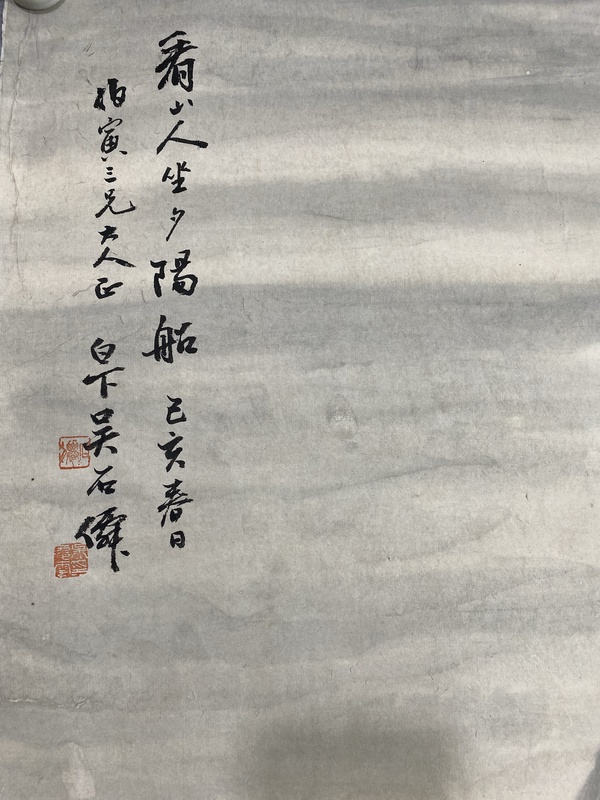 看山人坐夕陽船 己亥春日
柏寅三兄大人正 白下吴石僊